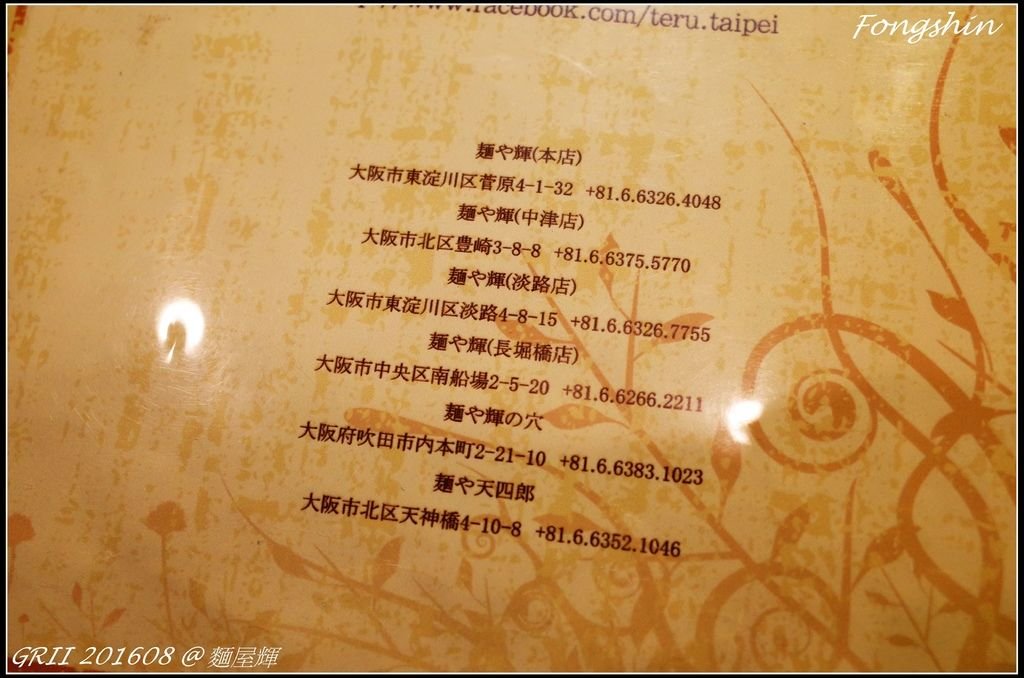 www.facebook.com/teru.taipei
Fongshin
麺や輝(本店)
大阪市東淀川区菅原4-1-32 +81.6.6326.4048
麺や輝(中津店)
大阪市北区豊崎3-8-8 +81.6.6375.5770
麺や輝(淡路店)
大阪市東淀川区淡路4-8-15 +81.6.6326.7755
麺や輝(長堀橋店)
大阪市中央区南船場2-5-20 +81.6.6266.2211
麺や輝の穴
大阪府吹田市内本町2-21-10 +81.6.6383.1023
麺や天四郎
大阪市北区天神橋4-10-8 +81.6.6352.1046
GRII 201608 @ 麵屋輝